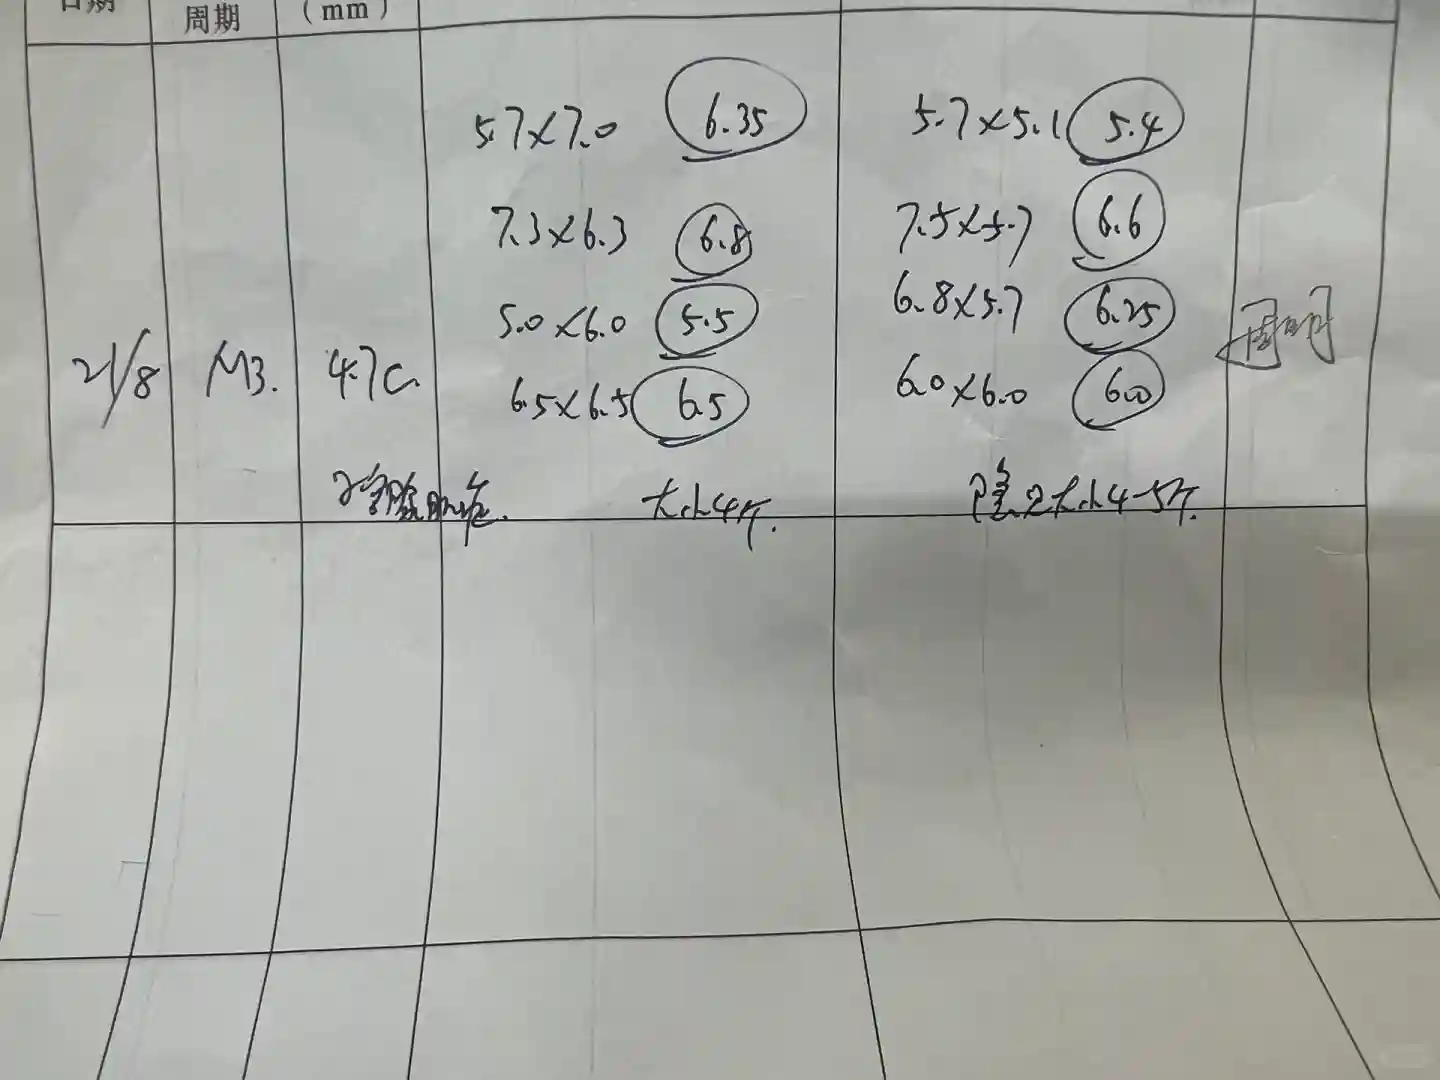 日期
周期
(mm)
5.7×7.0 6.35 5.7×5.1 5.4
7.3×6.3 6.8 7.5×5.7 6.6
5.0×6.0 5.5 6.8×5.7 6.25
21/8 M3. 4.7C. 6.5×6.5 6.5 6.0×6.0 6.0
大小4个. 隐见大小4-5个.